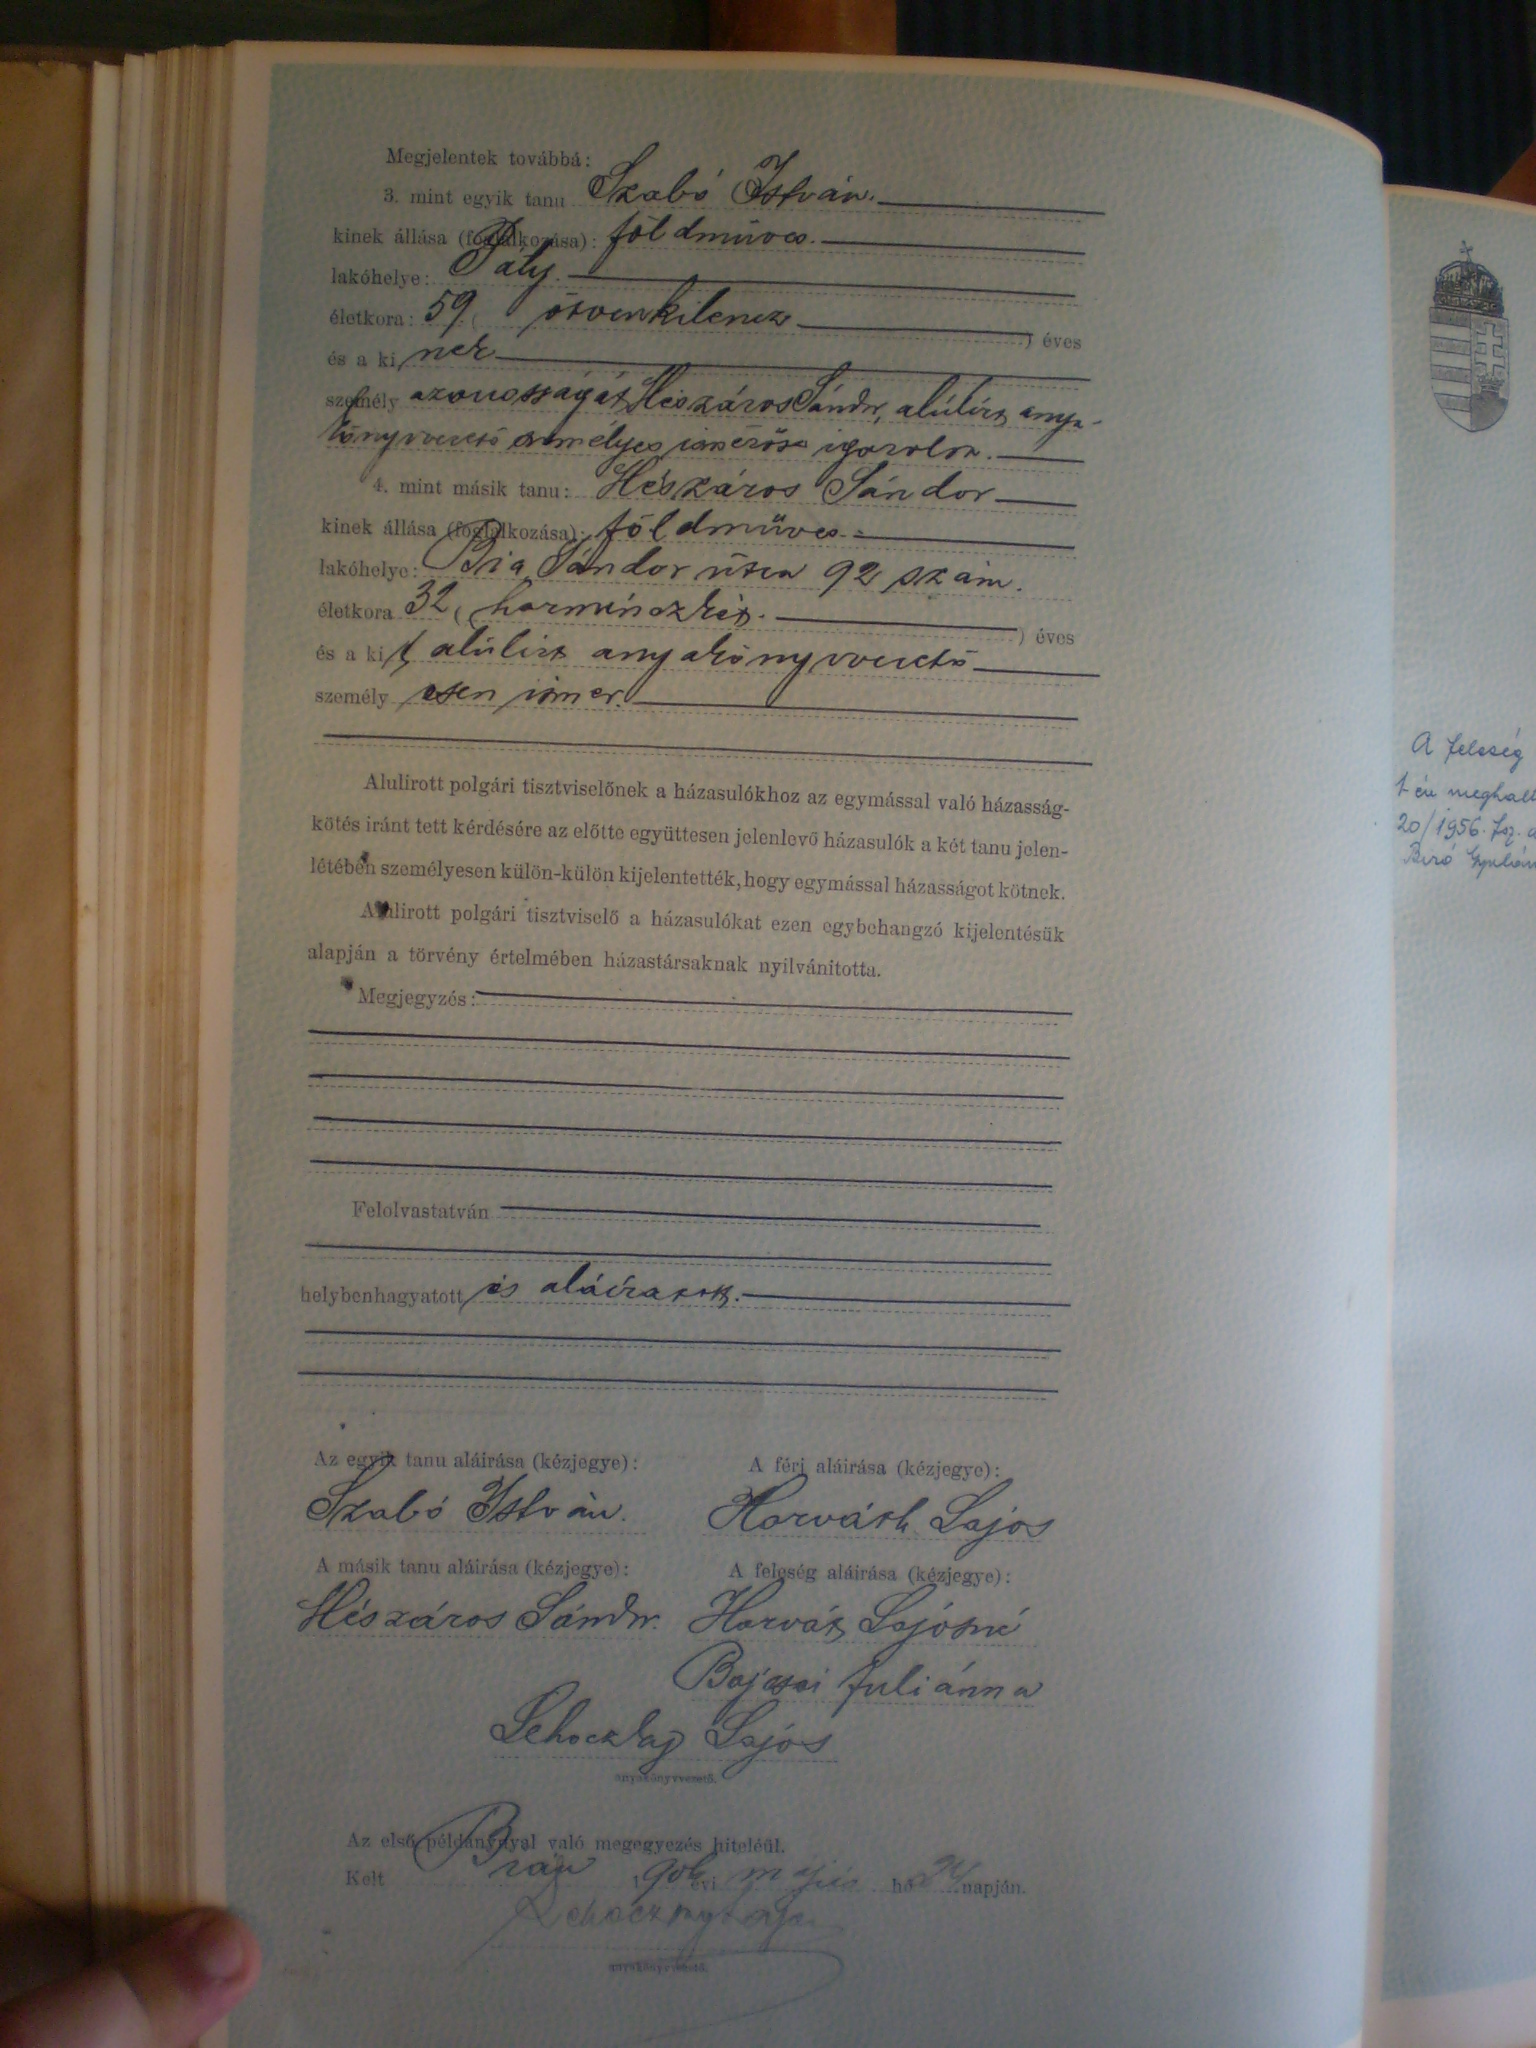 Megjelentek továbbá:
3. mint egyik tanu Szabó István.
kinek állása (foglalkozása): földműves.
lakóhelye: Páty.
életkora: 59 ( ötvenkilencz ) éves
és a ki nek
személy azonosságát Mészáros Sándor, alúlirt anya-
könyvvezető személyes ismerőse igazolta.
4. mint másik tanu: Mészáros Sándor
kinek állása (foglalkozása): földműves.
lakóhelye: Bia Sándor útca 92 szám.
életkora 32 ( harminczkét. ) éves
és a ki t alúlirt anyakönyvvezető
személy esen ismer.
Alulirott polgári tisztviselőnek a házasulókhoz az egymással való házasság-
kötés iránt tett kérdésére az előtte együttesen jelenlevő házasulók a két tanu jelen-
létében személyesen külön-külön kijelentették, hogy egymással házasságot kötnek.
Alulirott polgári tisztviselő a házasulókat ezen egybehangzó kijelentésük
alapján a törvény értelmében házastársaknak nyilvánitotta.
Megjegyzés:
Felolvastatván
helybenhagyatott és aláíratott.
Az egyik tanu aláirása (kézjegye): A férj aláirása (kézjegye):
Szabó István. Horváth Lajos
A másik tanu aláirása (kézjegye): A feleség aláirása (kézjegye):
Mészáros Sándor. Horvát Lajósné
Bajcsai Juliánna
Lehoczky Lajós
anyakönyvvezető.
Az első példánynyal való megegyezés hiteléül.
Kelt Bián 190 évi május hó 24 napján.
anyakönyvvezető.
A feleség
meghalt
20/1956. fsz. a
Biró Gyuláné